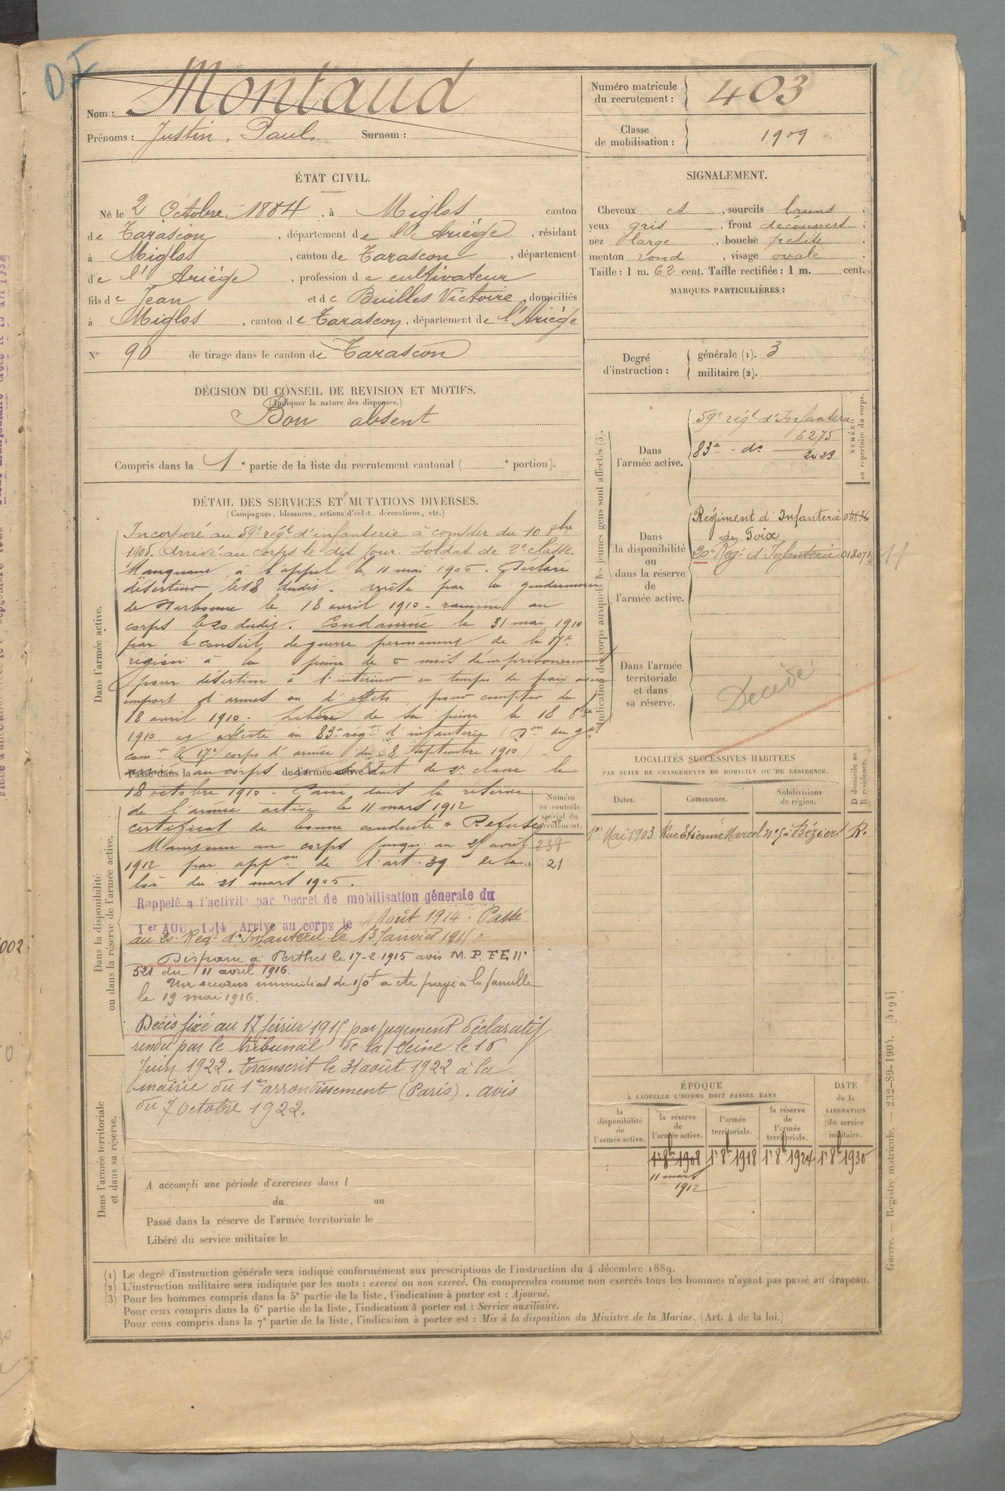 Nom : Montaud
Prénoms : Justin, Paul Surnom :
Numéro matricule du recrutement : 403
Classe de mobilisation : 1909
ÉTAT CIVIL.
Né le 2 Octobre 1884, à Miglos canton
de Tarascon, département de l'Ariège, résidant
à Miglos, canton de Tarascon, département
de l'Ariège, profession de cultivateur
fils de Jean et de Builles Victoire, domiciliés
à Miglos, canton de Tarascon, département de l'Ariège
N° 90 de tirage dans le canton de Tarascon
SIGNALEMENT.
Cheveux et, sourcils bruns
yeux gris, front découvert
nez large, bouche petite
menton rond, visage ovale
Taille : 1 m. 62 cent. Taille rectifiée : 1 m. cent.
MARQUES PARTICULIÈRES :
Degré d'instruction : générale (1). 3
militaire (2).
DÉCISION DU CONSEIL DE REVISION ET MOTIFS.
(Indiquer la nature des dispenses.)
Bon absent
Compris dans la 1e partie de la liste du recrutement cantonal ( e portion).
DÉTAIL DES SERVICES ET MUTATIONS DIVERSES.
(Campagnes, blessures, actions d'éclat, décorations, etc.)
Dans l'armée active.
Incorporé au 59e régt d'infanterie à compter du 10 8bre
1905. Arrivé au corps le dit jour. Soldat de 2e classe.
Manquant à l'appel le 11 mai 1906. Déclaré
déserteur le 18 dudit. arrêté par la gendarmerie
de Narbonne le 18 avril 1910. ramené au
corps le 20 dudit. Condamné le 31 mai 1910
par le conseil de guerre permanent de la 17e
région à la peine de 5 mois d'emprisonnement
pour désertion à l'intérieur en temps de paix avec
emport d'armes ou d'effets, pour compter du
18 avril 1910. Libéré de sa peine le 18 8bre
1910 et affecté au 83e régt d'infanterie (Don du gal
comt le 17e corps d'armée du 8 Septembre 1910)
Passé dans la au corps de l'armée active et soldat de 2e classe le
18 octobre 1910. Passé dans la réserve
de l'armée active le 11 mars 1912
certificat de bonne conduite "Refusé"
Maintenu au corps jusqu'au 25 avril
1912 par appon de l'art. 39 de la
loi du 21 mars 1905.
Dans la disponibilité ou dans la réserve de l'armée active.
Rappelé à l'activité par Décret de mobilisation générale du
1er AOU. 1914 Arrivé au corps le Août 1914. Passé
au 20e Régt d'Infanterie le 13 Janvier 1915.
Disparu à Perthes le 17-2-1915 avis M. P. FE n°
521 du 11 avril 1916.
Un secours immédiat de 150f a été payé à la famille
le 19 mai 1916.
Décès fixé au 17 février 1915 par jugement déclaratif
rendu par le tribunal de la Seine le 16
Juin 1922. Transcrit le 31 août 1922 à la
mairie du 1er arrondissement (Paris). avis
du 7 Octobre 1922.
Numéro au contrôle spécial du recrutement.
238
21
Dans l'armée territoriale et dans sa réserve.
A accompli une période d'exercices dans l
du au
Passé dans la réserve de l'armée territoriale le
Libéré du service militaire le
Indication des corps auxquels les jeunes gens sont affectés (3).
NUMÉRO au répertoire du corps.
Dans l'armée active.
59e régt d'Infanterie 6275
83e - do 2023
Dans la disponibilité ou dans la réserve de l'armée active.
Régiment d'Infanterie de Foix
20e Régt d'Infanterie
Dans l'armée territoriale et dans sa réserve.
Décédé
LOCALITÉS SUCCESSIVES HABITÉES
PAR SUITE DE CHANGEMENTS DE DOMICILE OU DE RÉSIDENCE.
Dates. Communes. Subdivisions de région. D domicile ou R résidence.
1er Mai 1903 Rue Etienne Marcel n° 5 Béziers R.
ÉPOQUE
À LAQUELLE L'HOMME DOIT PASSER DANS
la disponibilité de l'armée active. la réserve de l'armée active. l'armée territoriale. la réserve de l'armée territoriale.
DATE de la LIBÉRATION du service militaire.
1er 8b 1908 1er 8b 1918 1er 8b 1924 1er 8b 1930
11 mars 1912
(1) Le degré d'instruction générale sera indiqué conformément aux prescriptions de l'instruction du 4 décembre 1889.
(2) L'instruction militaire sera indiquée par les mots : exercé ou non exercé. On comprendra comme non exercés tous les hommes n'ayant pas passé au drapeau.
(3) Pour les hommes compris dans la 5e partie de la liste, l'indication à porter est : Ajourné.
Pour ceux compris dans la 6e partie de la liste, l'indication à porter est : Service auxiliaire.
Pour ceux compris dans la 7e partie de la liste, l'indication à porter est : Mis à la disposition du Ministre de la Marine. (Art. 4 de la loi.)
Guerre. Registre matricule. — 232-89-1904. [4194]